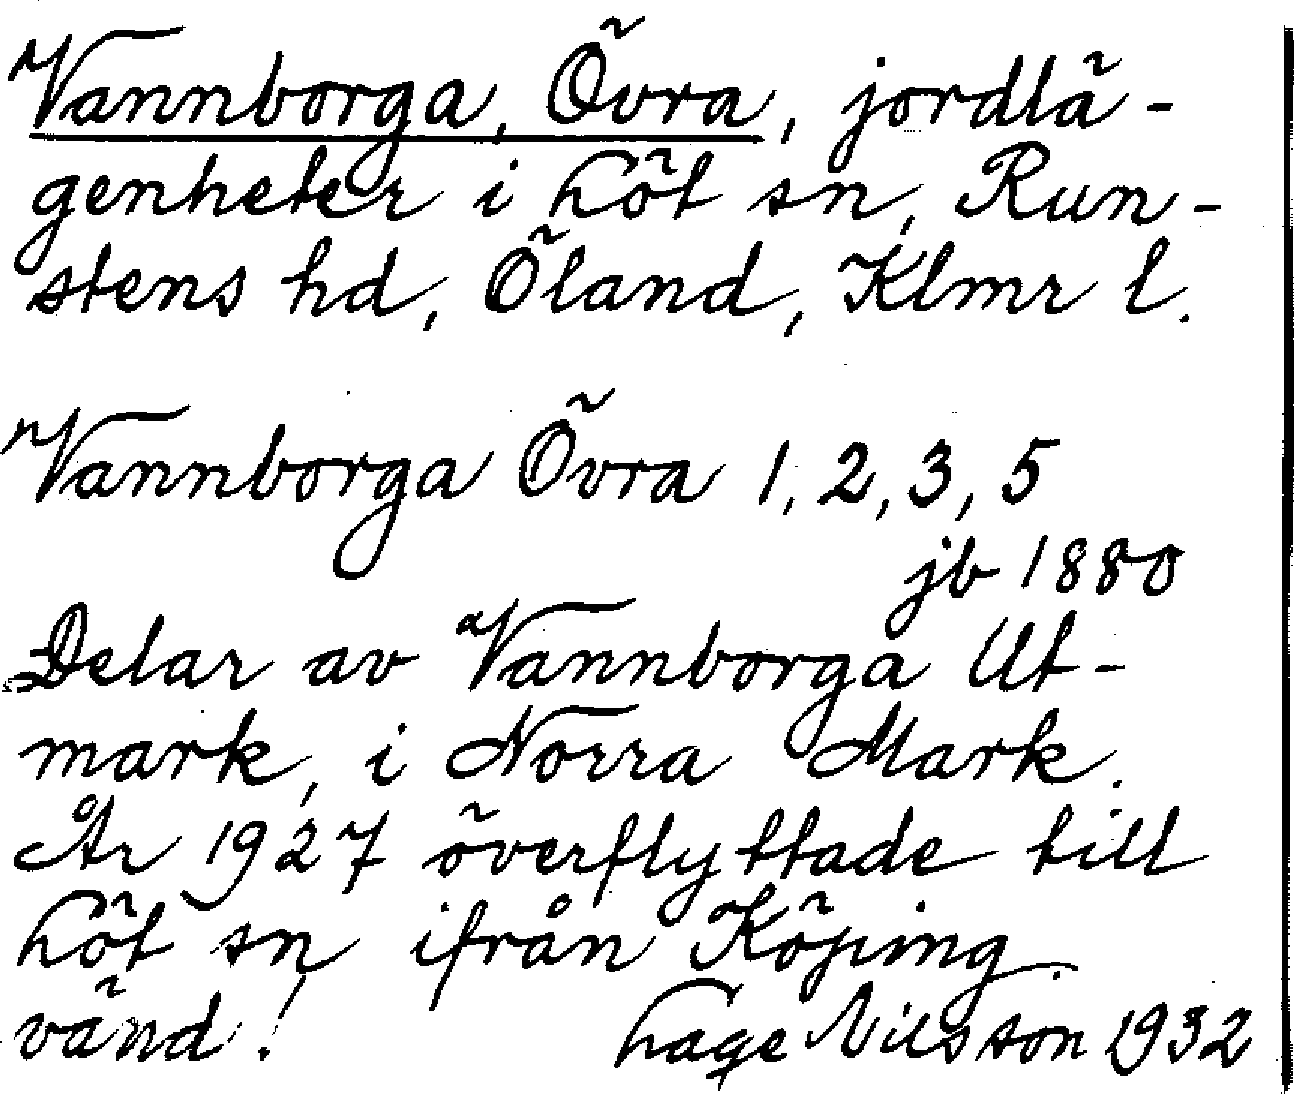 Vannborga, Övra, jordlä-
genheter i Löt sn, Run-
stens hd, Öland, Klmr l.
Vannborga Övra 1, 2, 3, 5
jb 1880
Delar av Vannborga Ut-
mark, i Norra Mark.
År 1927 överflyttade till
Löt sn ifrån Köping.
vänd! Lage Nilsson 1932